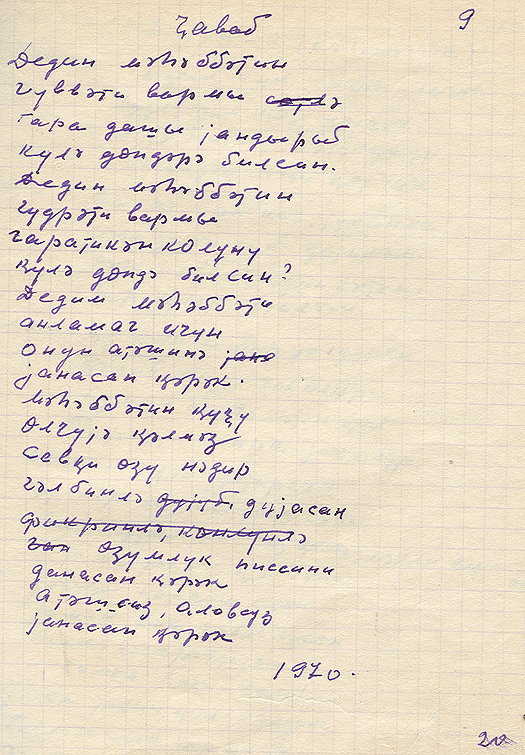 Ҹаваб
9
Дедин мәһәббәтин
гүввәти вармы
гара дашы јандырыб
күлә дөндәрә билсин.
Дедин мәһәббәтин
гүдрәти вармы
гаратикан колуну
күлә дөндә билсин?
Дедим мәһәббәти
анламаг ичүн
онун атәшинә јана
јанасан ҝәрәк.
Мәһәббәтин ҝүҹү
Өлчүјә ҝәлмәз
Севҝи өзү нәдир
гәлбинлә дујуб, дујасан
фикринлә, көнлүнлә
данасан ҝәрәк
Атәшсиз, аловсуз
јанасан ҝәрәк
1970.